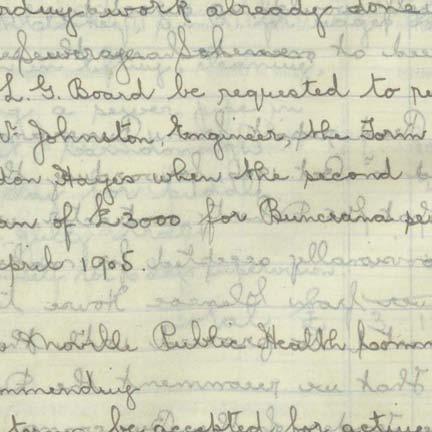 work already done
Sewerage Schemes to be
L. G. Board be requested to re
Johnston, Engineer, the Form
don Hayes when the second
an of £3000 for Buncrana
april 1905.
Moville Public Health Comm
mmending
be accepted for